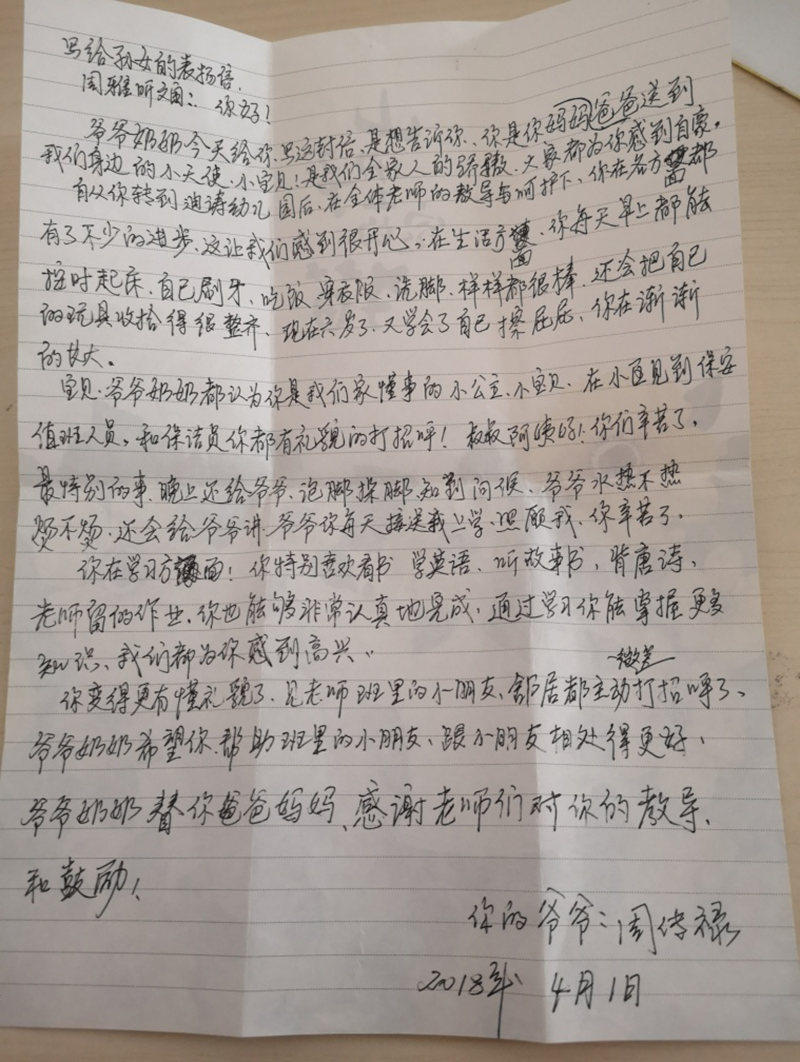 写给孙女的表扬信.
周雅昕文通:. 你好!
爷爷奶奶今天给你写这封信,是想告诉你、你是你妈妈爸爸送到
我们身边的小天使.小宝贝!是我们全家人的骄傲.大家都为你感到自豪.
自从你转到迪诗幼儿园后.在全体老师的教导与呵护下,你在各方面都
有了不少的进步.这让我们感到很开心.:在生活方面.你每天早上都能
按时起床.自己刷牙、吃饭 穿衣服、洗脚.样样都很棒.还会把自己
的玩具收拾得很整齐、现在六岁了.又学会了自己擦屁屁、你在渐渐
的长大。
宝贝.爷爷奶奶都认为你是我们家懂事的小公主.小宝贝.在小区见到保安
值班人员,和保洁员你都有礼貌的打招呼!叔叔阿姨好!你们辛苦了.
最特别的事.晚上还给爷爷、泡脚揉脚.知到问候、爷爷水热不热
烫不烫.还会给爷爷讲.爷爷你每天接送我上学.照顾我、你辛苦了.
你在学习方面!你特别喜欢看书 学英语、听故事书,背唐诗,
老师留的作业.你也能够非常认真地完成.通过学习你能掌握更多
知识、我们都为你感到高兴..
你变得更有懂礼貌了.见老师班里的小朋友、邻居都主动微笑打招呼了、
爷爷奶奶希望你.帮助班里的小朋友、跟小朋友相处得更好.
爷爷奶奶替你爸爸妈妈、感谢老师们对你的教导、
和鼓励!
你的爷爷:周传禄
2018年 4月1日